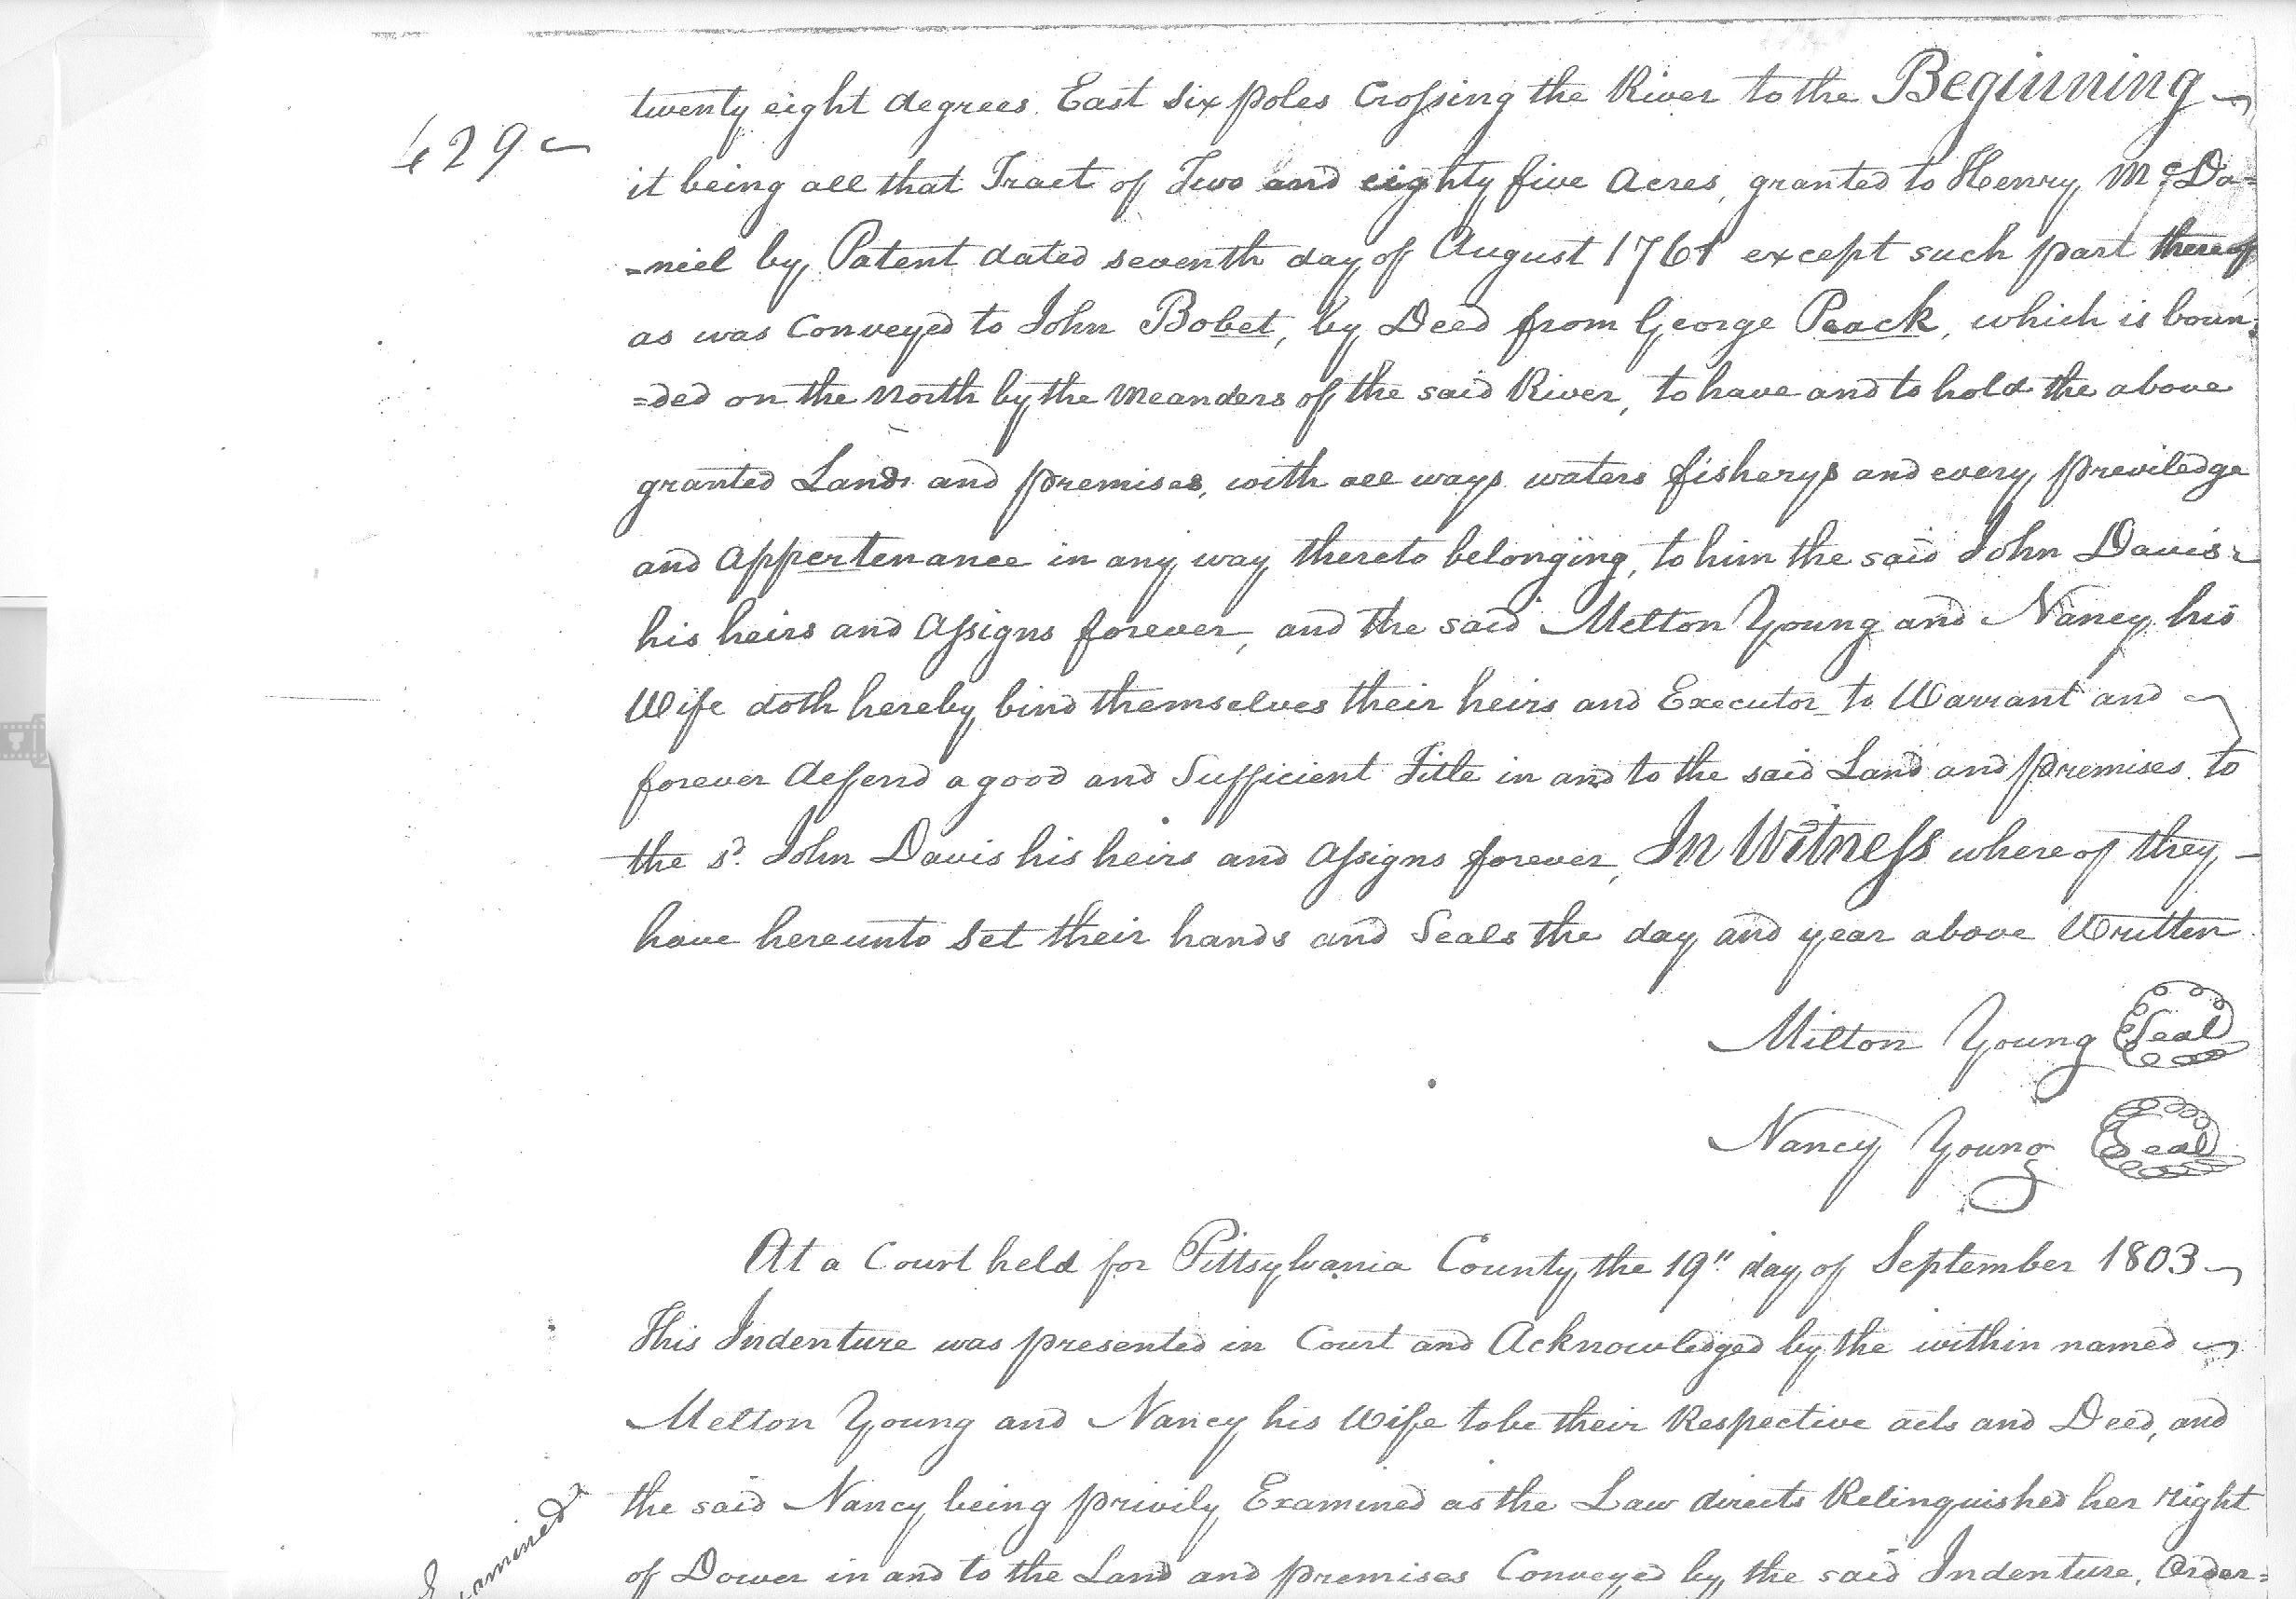 429
twenty eight degrees East six poles Crossing the River to the Beginning
it being all that Tract of Two and eighty five Acres, granted to Henry McDa=
=niel by Patent dated seventh day of August 1761 except such part thereof
as was Conveyed to John Bobet, by Deed from George Peack, which is boun=
=ded on the North by the Meanders of the said River, to have and to hold the above
granted Lands and premises, with all ways waters fisherys and every previledge
and appertenance in any way thereto belonging, to him the said John Davis
his heirs and Assigns forever, and the said Melton Young and Nancy his
Wife doth hereby bind themselves their heirs and Executor to Warrant and
forever deffend a good and Sufficient Title in and to the said Land and premises to
the sd. John Davis his heirs and Assigns forever, In Witness where of they
have hereunto Set their hands and Seals the day and year above Written
Milton Young Seal
Nancy Young Seal
At a Court held for Pittsylvania County the 19" day of September 1803
This Indenture was presented in Court and Acknowledged by the within named
Melton Young and Nancy his Wife to be their Respective acts and Deed, and
the said Nancy being privily Examined as the Law directs Relinquished her right
of Dower in and to the Land and premises Conveyed by the said Indenture, Order=
Examined